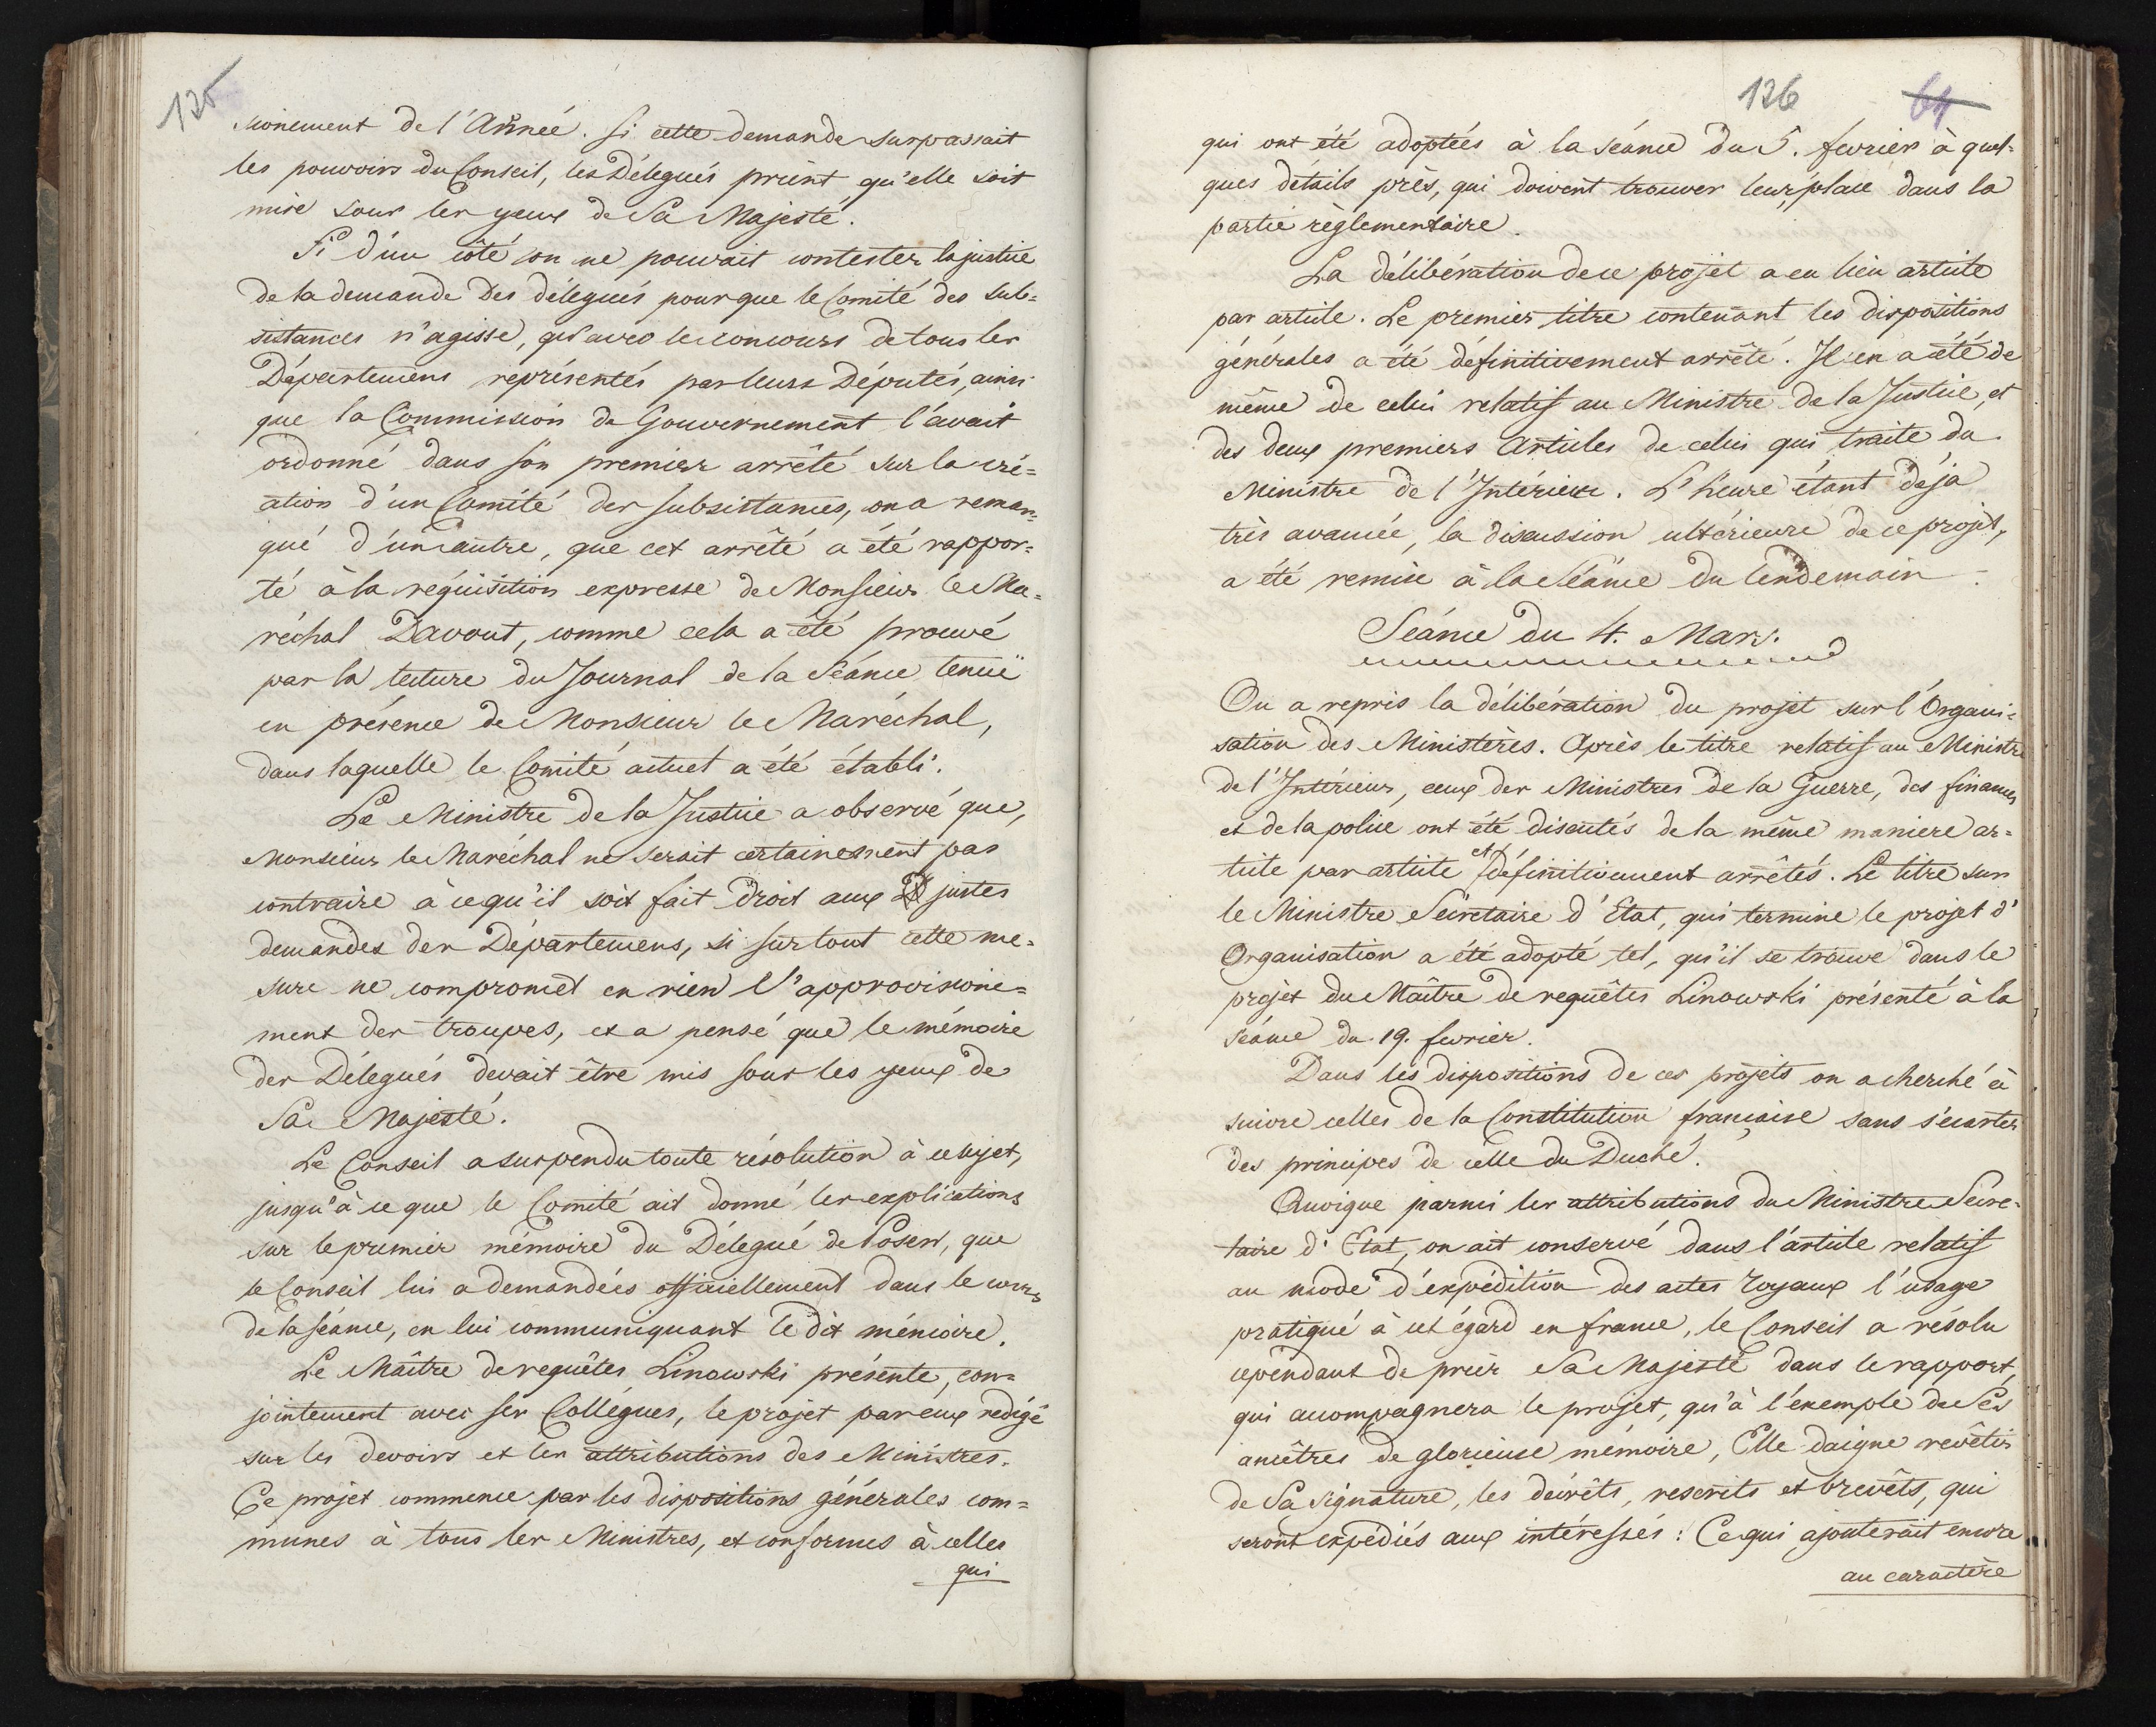 125
sionement de l'Année. Si cette demande surpassait
les pouvoirs du Conseil, les Délegués prient qu'elle soit
mise sous les yeux de Sa Majesté.
Si d'un côté on ne pouvait contester la justice
de la demande des délegués pour que le Comité des sub=
sistances n'agisse, qu'avec le concours de tous les
Départemens représentés par leurs Députés, ainsi
que la Commission de Gouvernement l'avait
ordonné dans son premier arrêté sur la cré=
ation d'un Comité des subsistances, on a remar=
qué d'un autre, que cet arrêté a été rappor=
té à la réquisition expresse de Monsieur le Ma=
réchal Davout, comme cela a été prouvé
par la lecture du Journal de la Séance tenuë
en présence de Monsieur le Maréchal,
dans laquelle le Comité actuel a été établi.
Le Ministre de la Justice a observé que,
Monsieur le Maréchal ne serait certainement pas
contraire à ce qu'il soit fait droit aux justes
demandes des Départemens, si surtout cette me=
sure ne compromet en rien l'approvisione=
ment des troupes, et a pensé que le mémoire
des Délegués devait être mis sous les yeux de
Sa Majesté.
Le Conseil a suspendu toute résolution à ce sujet,
jusqu'à ce que le Comité ait donné les explications
sur le premier mémoire du Délegué de Posen, que
le Conseil lui a demandées officiellement dans le cours
de la séance, en lui communiquant le dit mémoire.
Le Maître de requêtes Linowski présente, con=
jointement avec ses Collègues, le projet par eux redigé
sur les devoirs et les attributions des Ministres.
Ce projet commence par les dispositions générales com=
munes à tous les Ministres, et conformes à celles
qui
126
64
qui ont été adoptées à la séance du 5. fevrier à quel=
ques détails près, qui doivent trouver leur place dans la
partie règlementaire.
La délibération de ce projet a eu lieu article
par article. Le premier titre contenant les dispositions
générales a été définitivement arrêté. Il en a été de
même de celui relatif au Ministre de la Justice, et
des deux premiers Articles de celui qui traite du
Ministre de l'Intérieur. L'heure étant déja
très avancée, la discussion ultérieure de ce projet,
a été remise à la Séance du lendemain.
Séance du 4. Mars.
On a repris la délibération du projet sur l'Organi=
sation des Ministères. Après le titre relatif au Ministre
de l'Intérieur, ceux des Ministres de la Guerre, des finances
et de la police ont été discutés de la même maniere ar=
ticle par article et définitivement arrêtés. Le titre sur
le Ministre Sécretaire d'Etat, qui termine le projet d'
Organisation a été adopté tel, qu'il se trouve dans le
projet du Maître de requêtes Linowski présenté à la
séance du 19. fevrier.
Dans les dispositions de ces projets on a cherché à
suivre celles de la Constitution française sans s'écarter
des principes de celle du Duché.
Quoique parmi les attributions du Ministre Secre=
taire d'Etat, on ait conservé dans l'article relatif
au mode d'expédition des actes royaux l'usage
pratiqué à cet égard en france, le Conseil a résolu
cependant de prier Sa Majesté dans le rapport,
qui accompagnera le projet, qu'à l'exemple de Ses
ancêtres de glorieuse mémoire, Elle daigne revêtir
de Sa signature, les décrêts, rescrits et brevêts, qui
seront expédiés aux intéressés: Ce qui ajouterait encore
au caractère